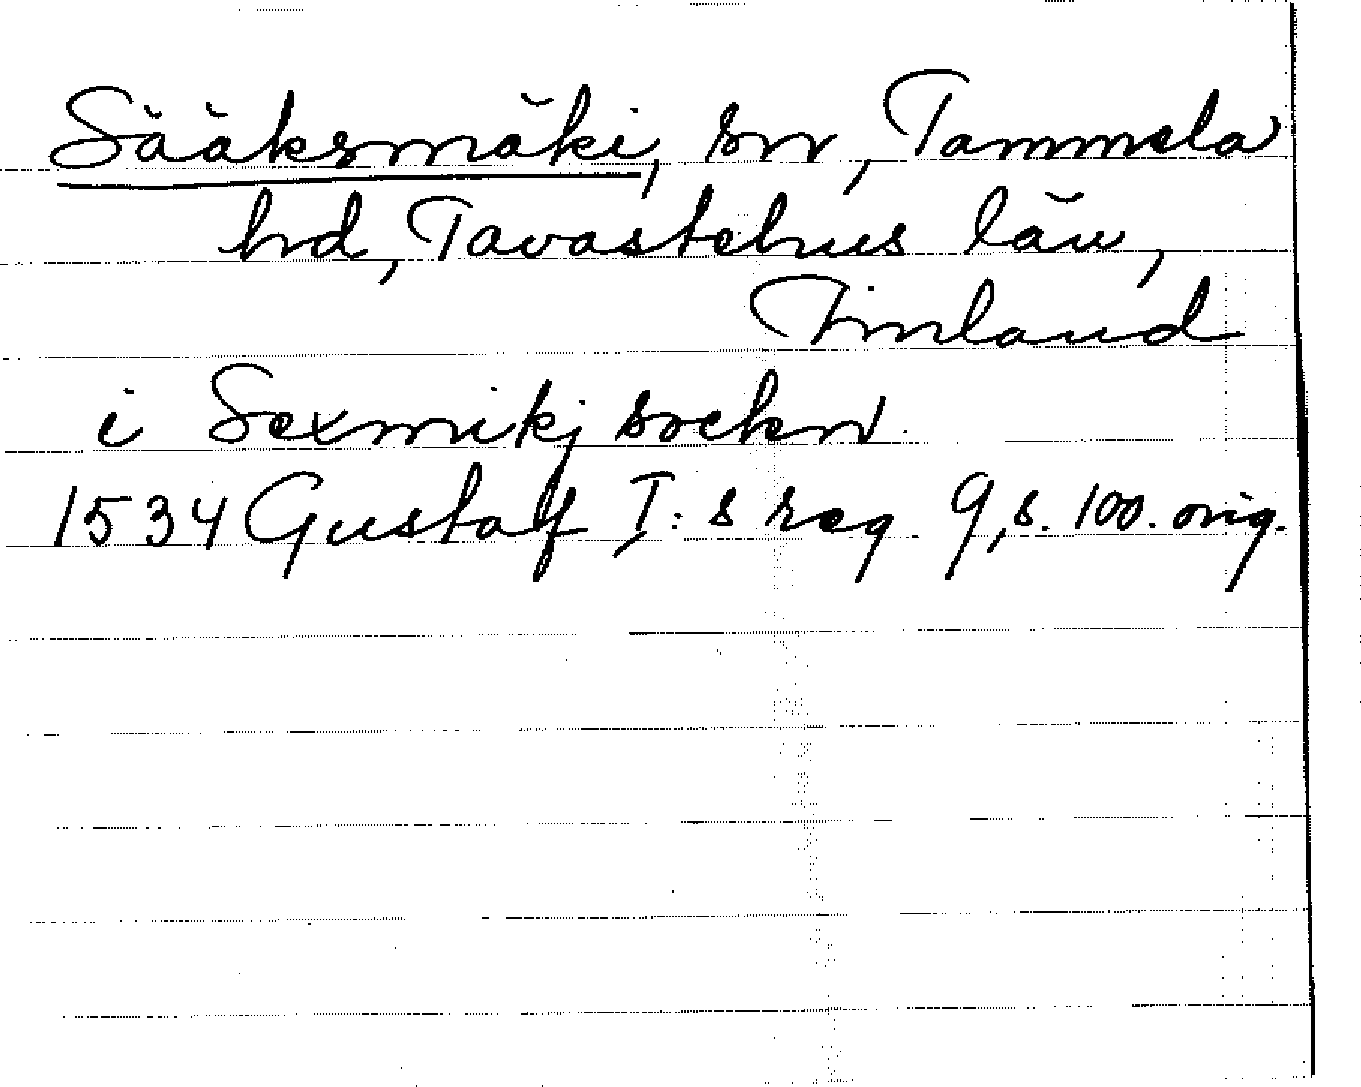 Sääksmäki, sn, Tammela
hd, Tavastehus län,
Finland
i Sexmikj sockn
1534 Gustaf I:s reg. 9, s. 100. orig.